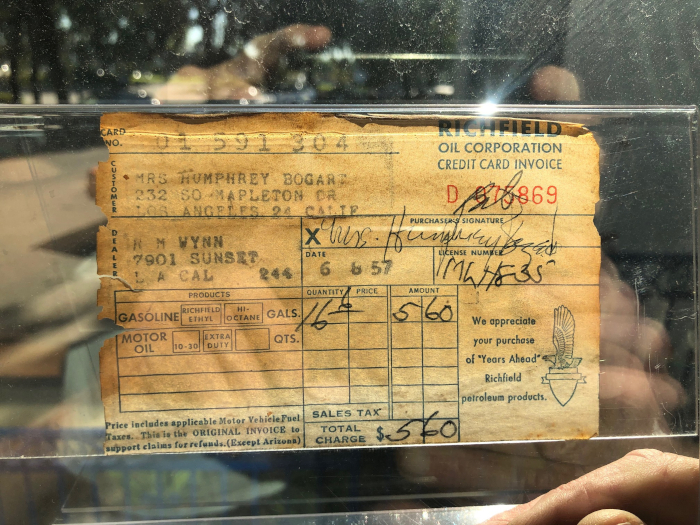 CARD NO. 01 591 304
RICHFIELD
OIL CORPORATION
CREDIT CARD INVOICE
CUSTOMER
MRS HUMPHREY BOGART
232 SO MAPLETON DR
LOS ANGELES 24 CALIF
D 975869
PURCHASER'S SIGNATURE
X Mrs. Humphrey Bogart
DEALER
R M WYNN
7901 SUNSET
L A CAL 244
DATE
6 6 57
LICENSE NUMBER
PRODUCTS
QUANTITY PRICE AMOUNT
GASOLINE RICHFIELD ETHYL HI-OCTANE GALS. 16 5 60
MOTOR OIL 10-30 EXTRA DUTY QTS.
We appreciate
your purchase
of "Years Ahead"
Richfield
petroleum products.
Price includes applicable Motor Vehicle Fuel
Taxes. This is the ORIGINAL INVOICE to
support claims for refunds. (Except Arizona)
SALES TAX
TOTAL CHARGE $ 5 60